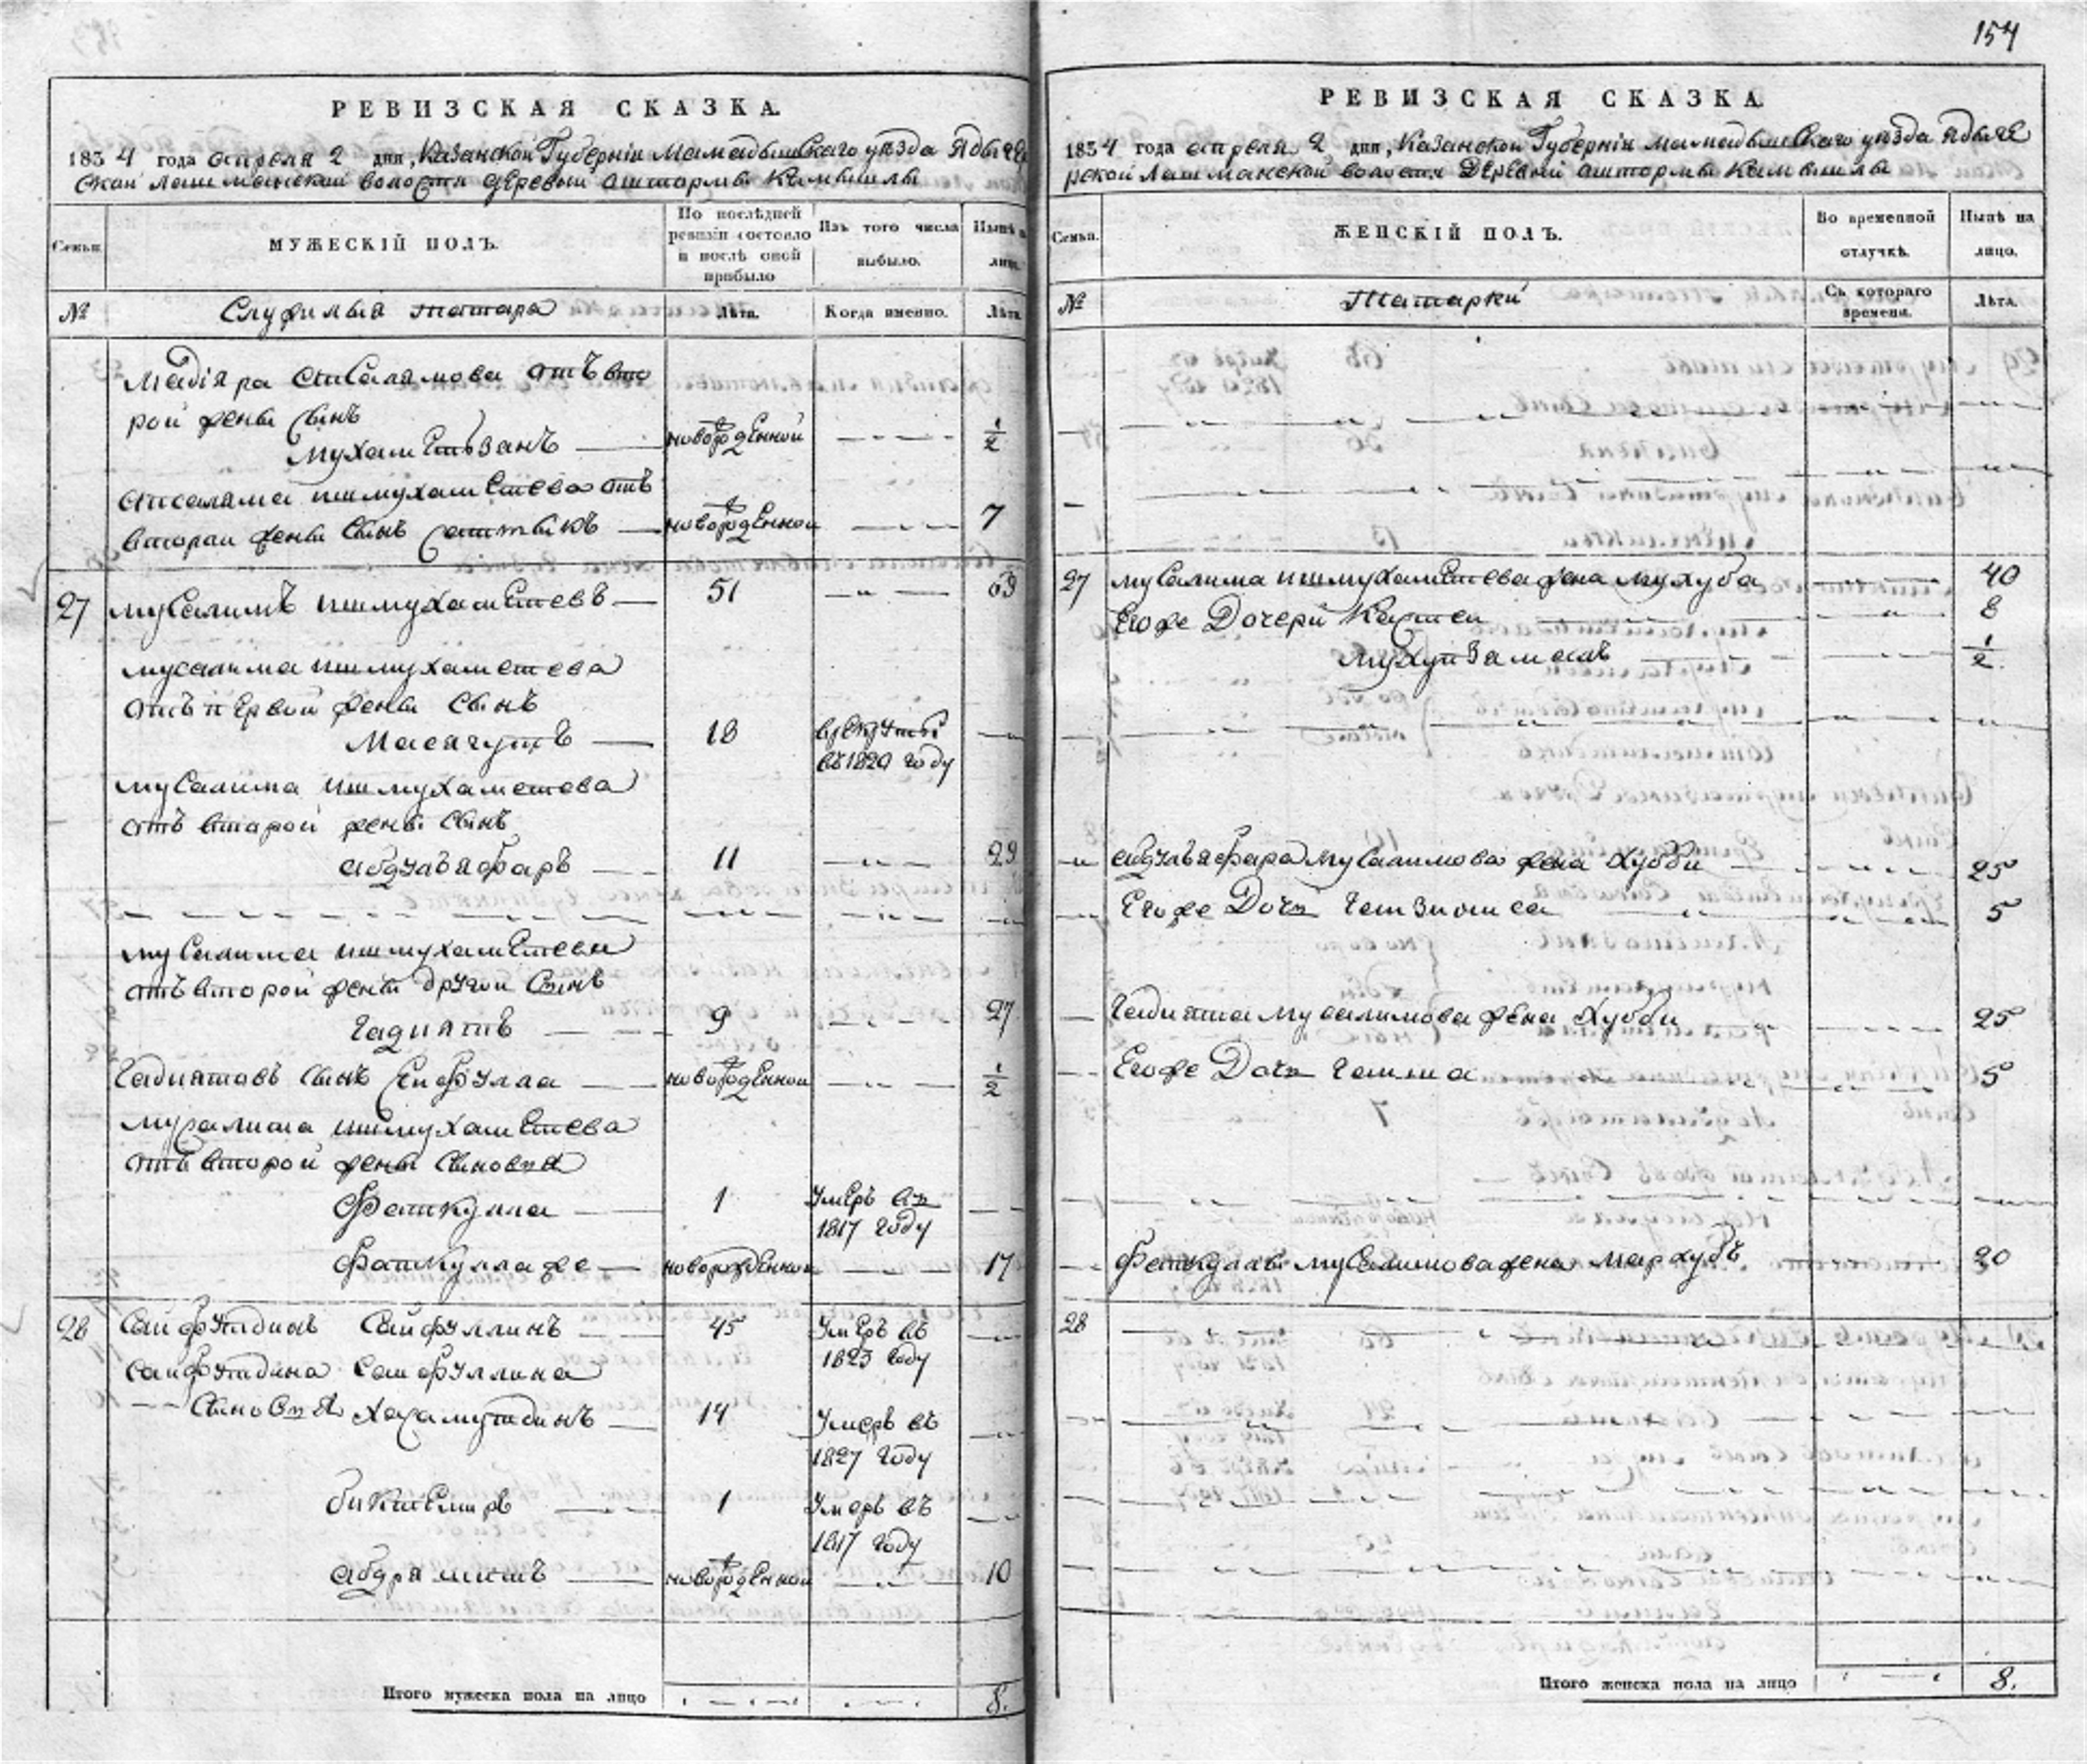 154
РЕВИЗСКАЯ СКАЗКА.
1834 года апреля 2 дня, Казанской Губерніи Мамадышскаго уезда
ской лашманской волости деревни Аштормы Камышлы
Семьи.
МУЖЕСКІЙ ПОЛЪ.
По послѣдней ревизіи состояло и послѣ оной прибыло
Изъ того числа выбыло.
Нынѣ на лицо.
№
Служилыя татара
Лѣта.
Когда именно.
Лѣта
отъ вто
рой жены сынъ
Мухаметьзанъ новорожденной 1/2
Апсаляма Ишмухаметева отъ
второй жены сынъ новорожденной 7
27 Мусалимъ Ишмухаметевъ 51 63
Мусалима Ишмухаметева
отъ первой жены сынъ
Масягутъ 18 врекруты
въ 1820 году
Мусалима Ишмухаметева
отъ второй жены сынъ
Абдулъяфаръ 11 29
Мусалима Ишмухаметева
отъ второй жены другой сынъ
Гадиятъ 9 27
Гадиятовъ сынъ Сейфулла новорожденной 1/2
Мусалима Ишмухаметева
отъ второй жены сыновья
Фаткулла 1 умеръ въ
1817 году
Фаткулла же новорожденной 17
28 Сайфутдинъ Сайфуллинъ 45 умеръ въ
1823 году
Сайфутдина Сайфуллина
сыновья Хасамутдинъ 14 умеръ въ
1827 году
Биктемиръ 1 умеръ въ
1817 году
новорожденной 10
Итого мужеска пола на лицо 8.
РЕВИЗСКАЯ СКАЗКА
1834 года апреля 2 дня, Казанской Губерніи Мамадышскаго уезда
рской лашманской волости Деревни Аштормы Камышлы
Семьи.
ЖЕНСКІЙ ПОЛЪ.
Во временной отлучкѣ.
Нынѣ на лицо.
№
Татарки
Съ котораго времени.
Лѣта.
27 Мусалима Ишмухаметева жена Мухуба 40
Егоже Дочери 8
1/2
Абдулъяфара Мусалимова жена Хубби 25
Егоже Дочь 5
Гадията Мусалимова жена Хубби 25
Егоже Дочь 5
Фаткуллы Мусалимова жена Мархубъ 20
28
Итого женска пола на лицо 8.